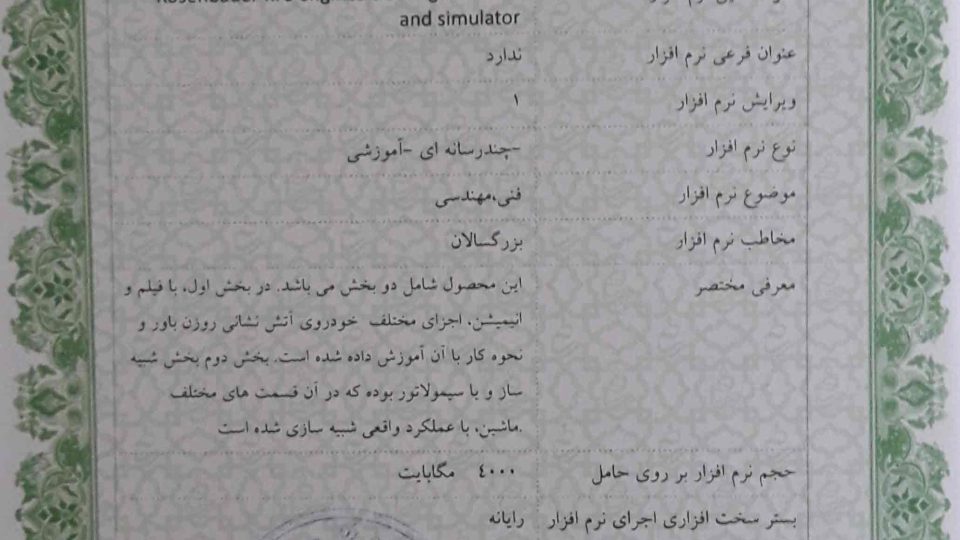 and simulator
عنوان فرعی نرم افزار ندارد
ویرایش نرم افزار ۱
نوع نرم افزار -چندرسانه ای -آموزشی
موضوع نرم افزار فنی،مهندسی
مخاطب نرم افزار بزرگسالان
معرفی مختصر این محصول شامل دو بخش می باشد. در بخش اول، با فیلم و
انیمیشن، اجزای مختلف خودروی آتش نشانی روزن باور و
نحوه کار با آن آموزش داده شده است. بخش دوم بخش شبیه
ساز و یا سیمولاتور بوده که در آن قسمت های مختلف
.ماشین، با عملکرد واقعی شبیه سازی شده است
حجم نرم افزار بر روی حامل ۴۰۰۰ مگابایت
بستر سخت افزاری اجرای نرم افزار رایانه